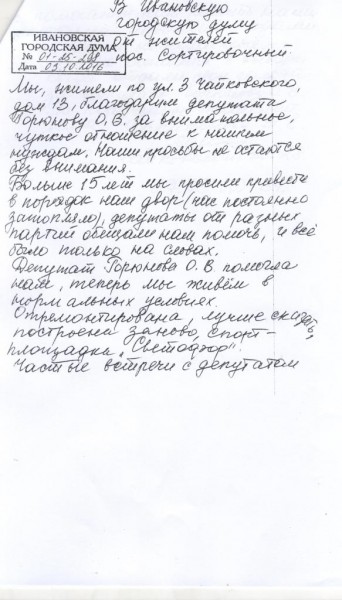 В Ивановскую
городскую думу
от жителей
пос. Сортировочный.
ИВАНОВСКАЯ
ГОРОДСКАЯ ДУМА
№ 01-25-208
Дата 03.10.2016
Мы, жители по ул. 3 Чайковского,
дом 13, благодарим депутата
Горюнову О.В. за внимательное,
чуткое отношение к нашим
нуждам. Наши просьбы не остаются
без внимания.
Больше 15 лет мы просили привести
в порядок наш двор (нас постоянно
затопляло), депутаты от разных
партий обещали нам помочь, и всё
было только на словах.
Депутат Горюнова О.В. помогла
нам, теперь мы живём в
нормальных условиях.
Отремонтирована, лучше сказать,
построена заново спорт-
площадка „Светодар".
Частые встречи с депутатом